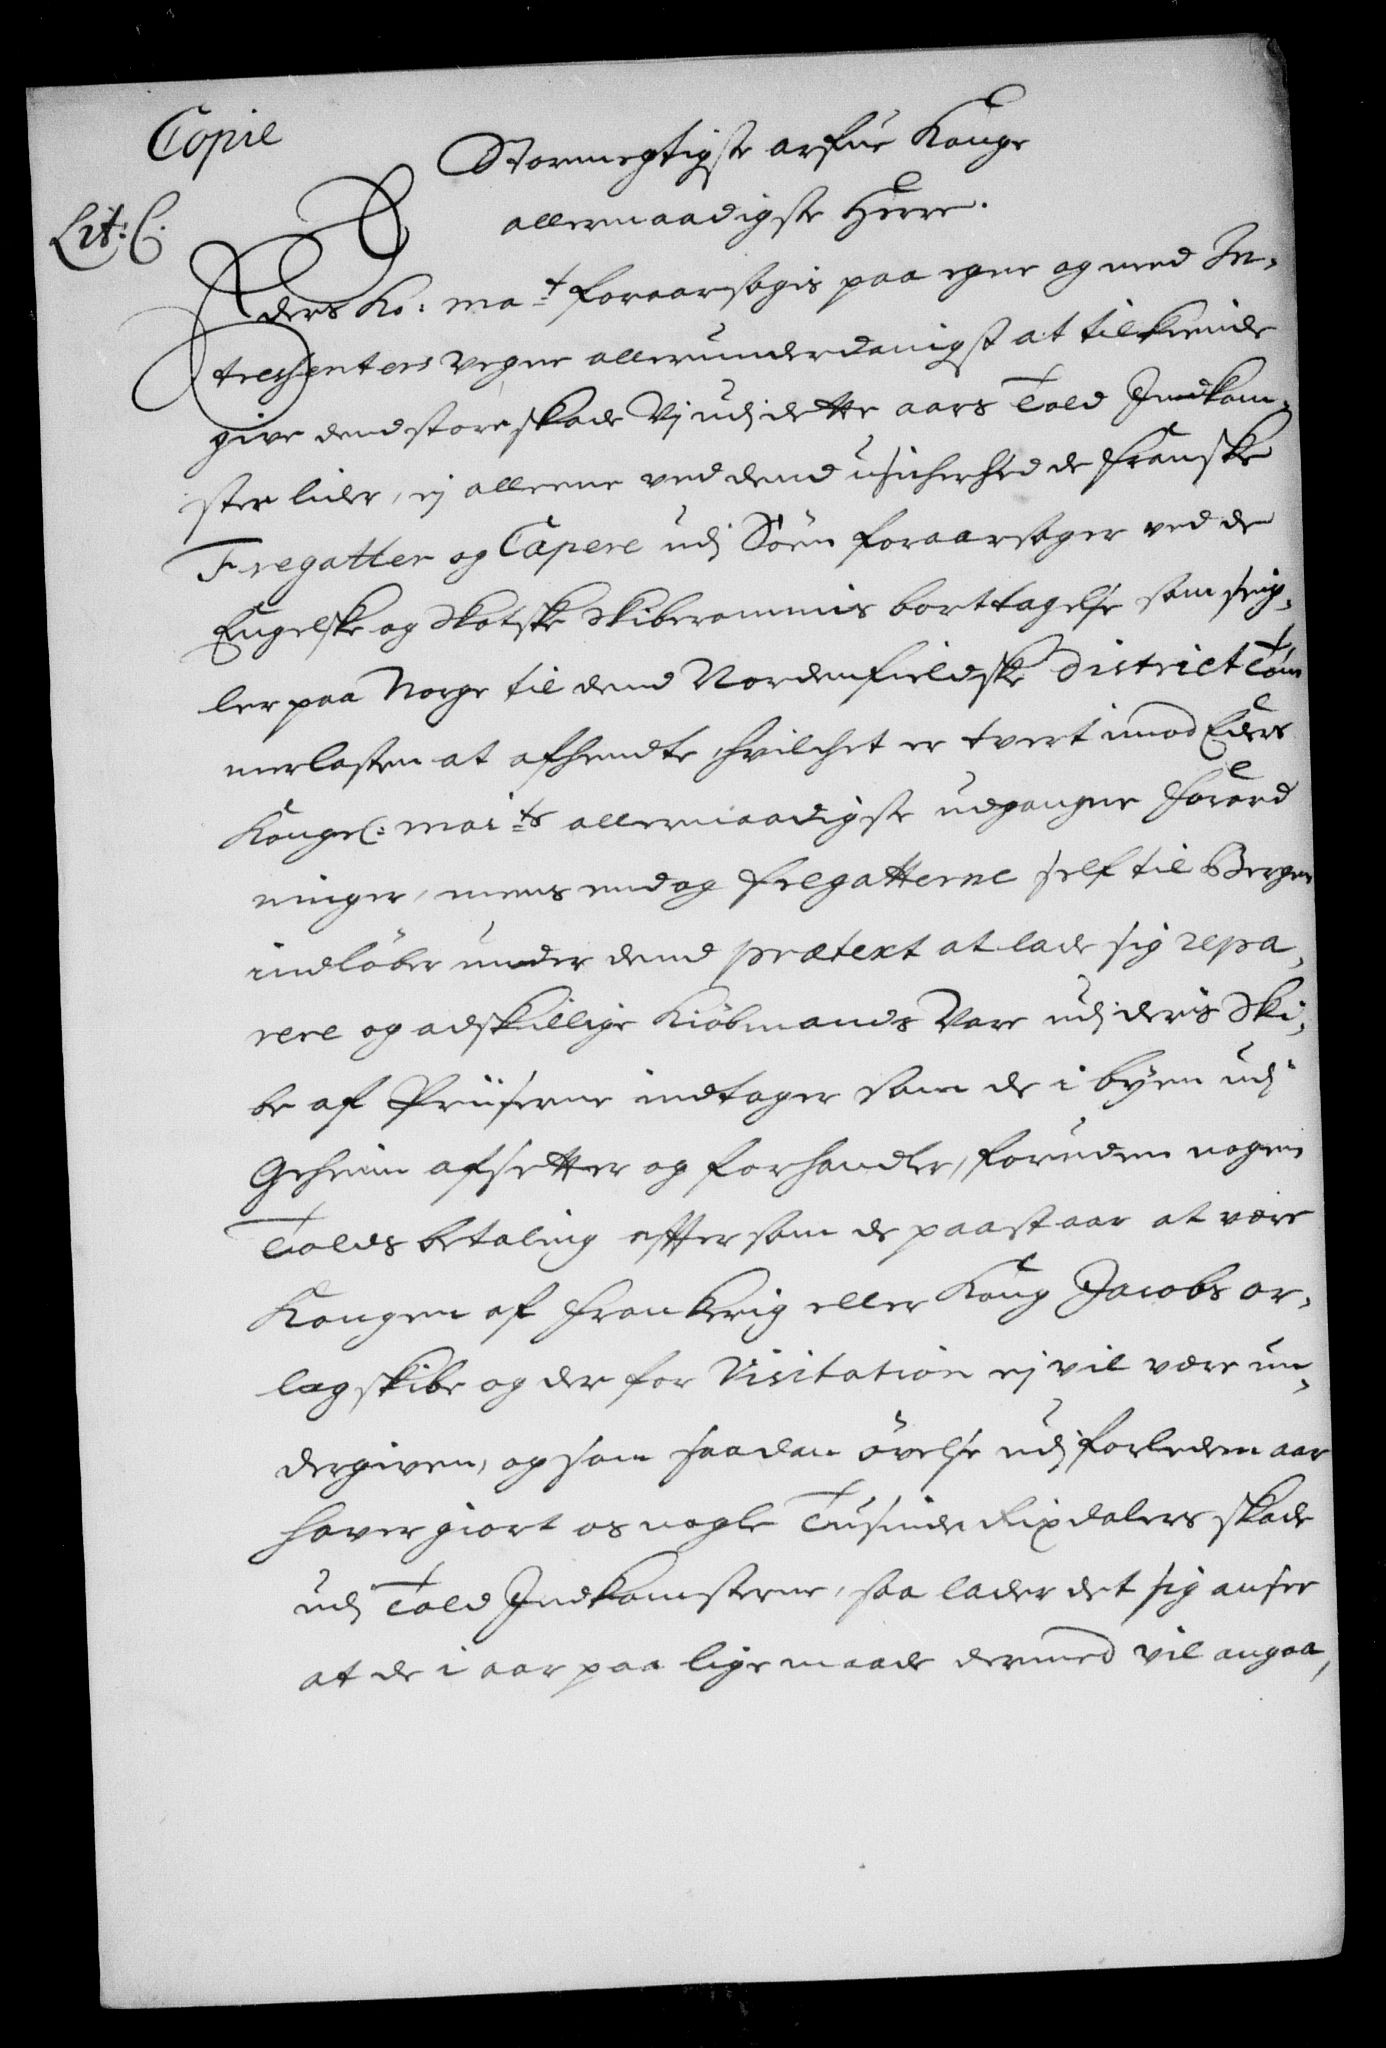 Copie
Stormegtigste arfue Konge
Lit: C.
allernaadigste Herre.
Eders Ko: ma:t foraarsagis paa egne og med In,
tressenters Vegne allerunderdanigst at tilkiende
give dend store skade Vj udj dette aars Told Indkom,
ster lider, ej alleene ved dend usicherhed de franske
Fregatter og Capere udj Söen foraarsager ved de
Engelske og Skotske Skiberommis borttagelse som seig,
ler paa Norge til dend Nordenfieldske District Töm
merlasten at afhendte, hvilchet er tvert imod Eders
Kongel: mai:ts allernaadigste udgangne Forord
ninger, mens endog fregatterne self til Bergen
indlöber under dend prætext at lade sig repa,
rere og adskillige Kiöbmands Vare udj deris Ski,
be af Priiserne indtager som de i byen udj
Geheim afsetter og forhandler, foruden nogen
Tolds betaling effter som de paastaar at være
Kongen af Frankerig eller Kong Jacobs or,
lag skibe og der for Visitation ej vil være un,
dergiven, og som saadan övelse udj forleden aar
haver giort os nogle Tusinde Rixdalers skade
udj Told Indkomsterne, saa lader det sig ansee
at de i aar paa lige maade dermed vil angaa,